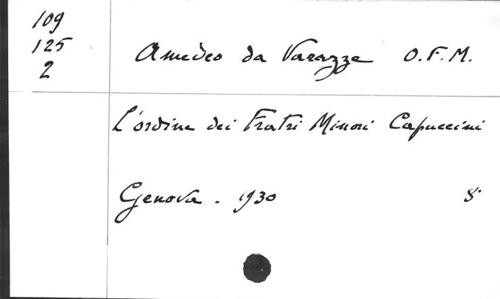 109
125
2
Amedeo da Varazze O.F.M.
L'ordine dei Fratri Minori Capuccini
Genova - 1930 8°